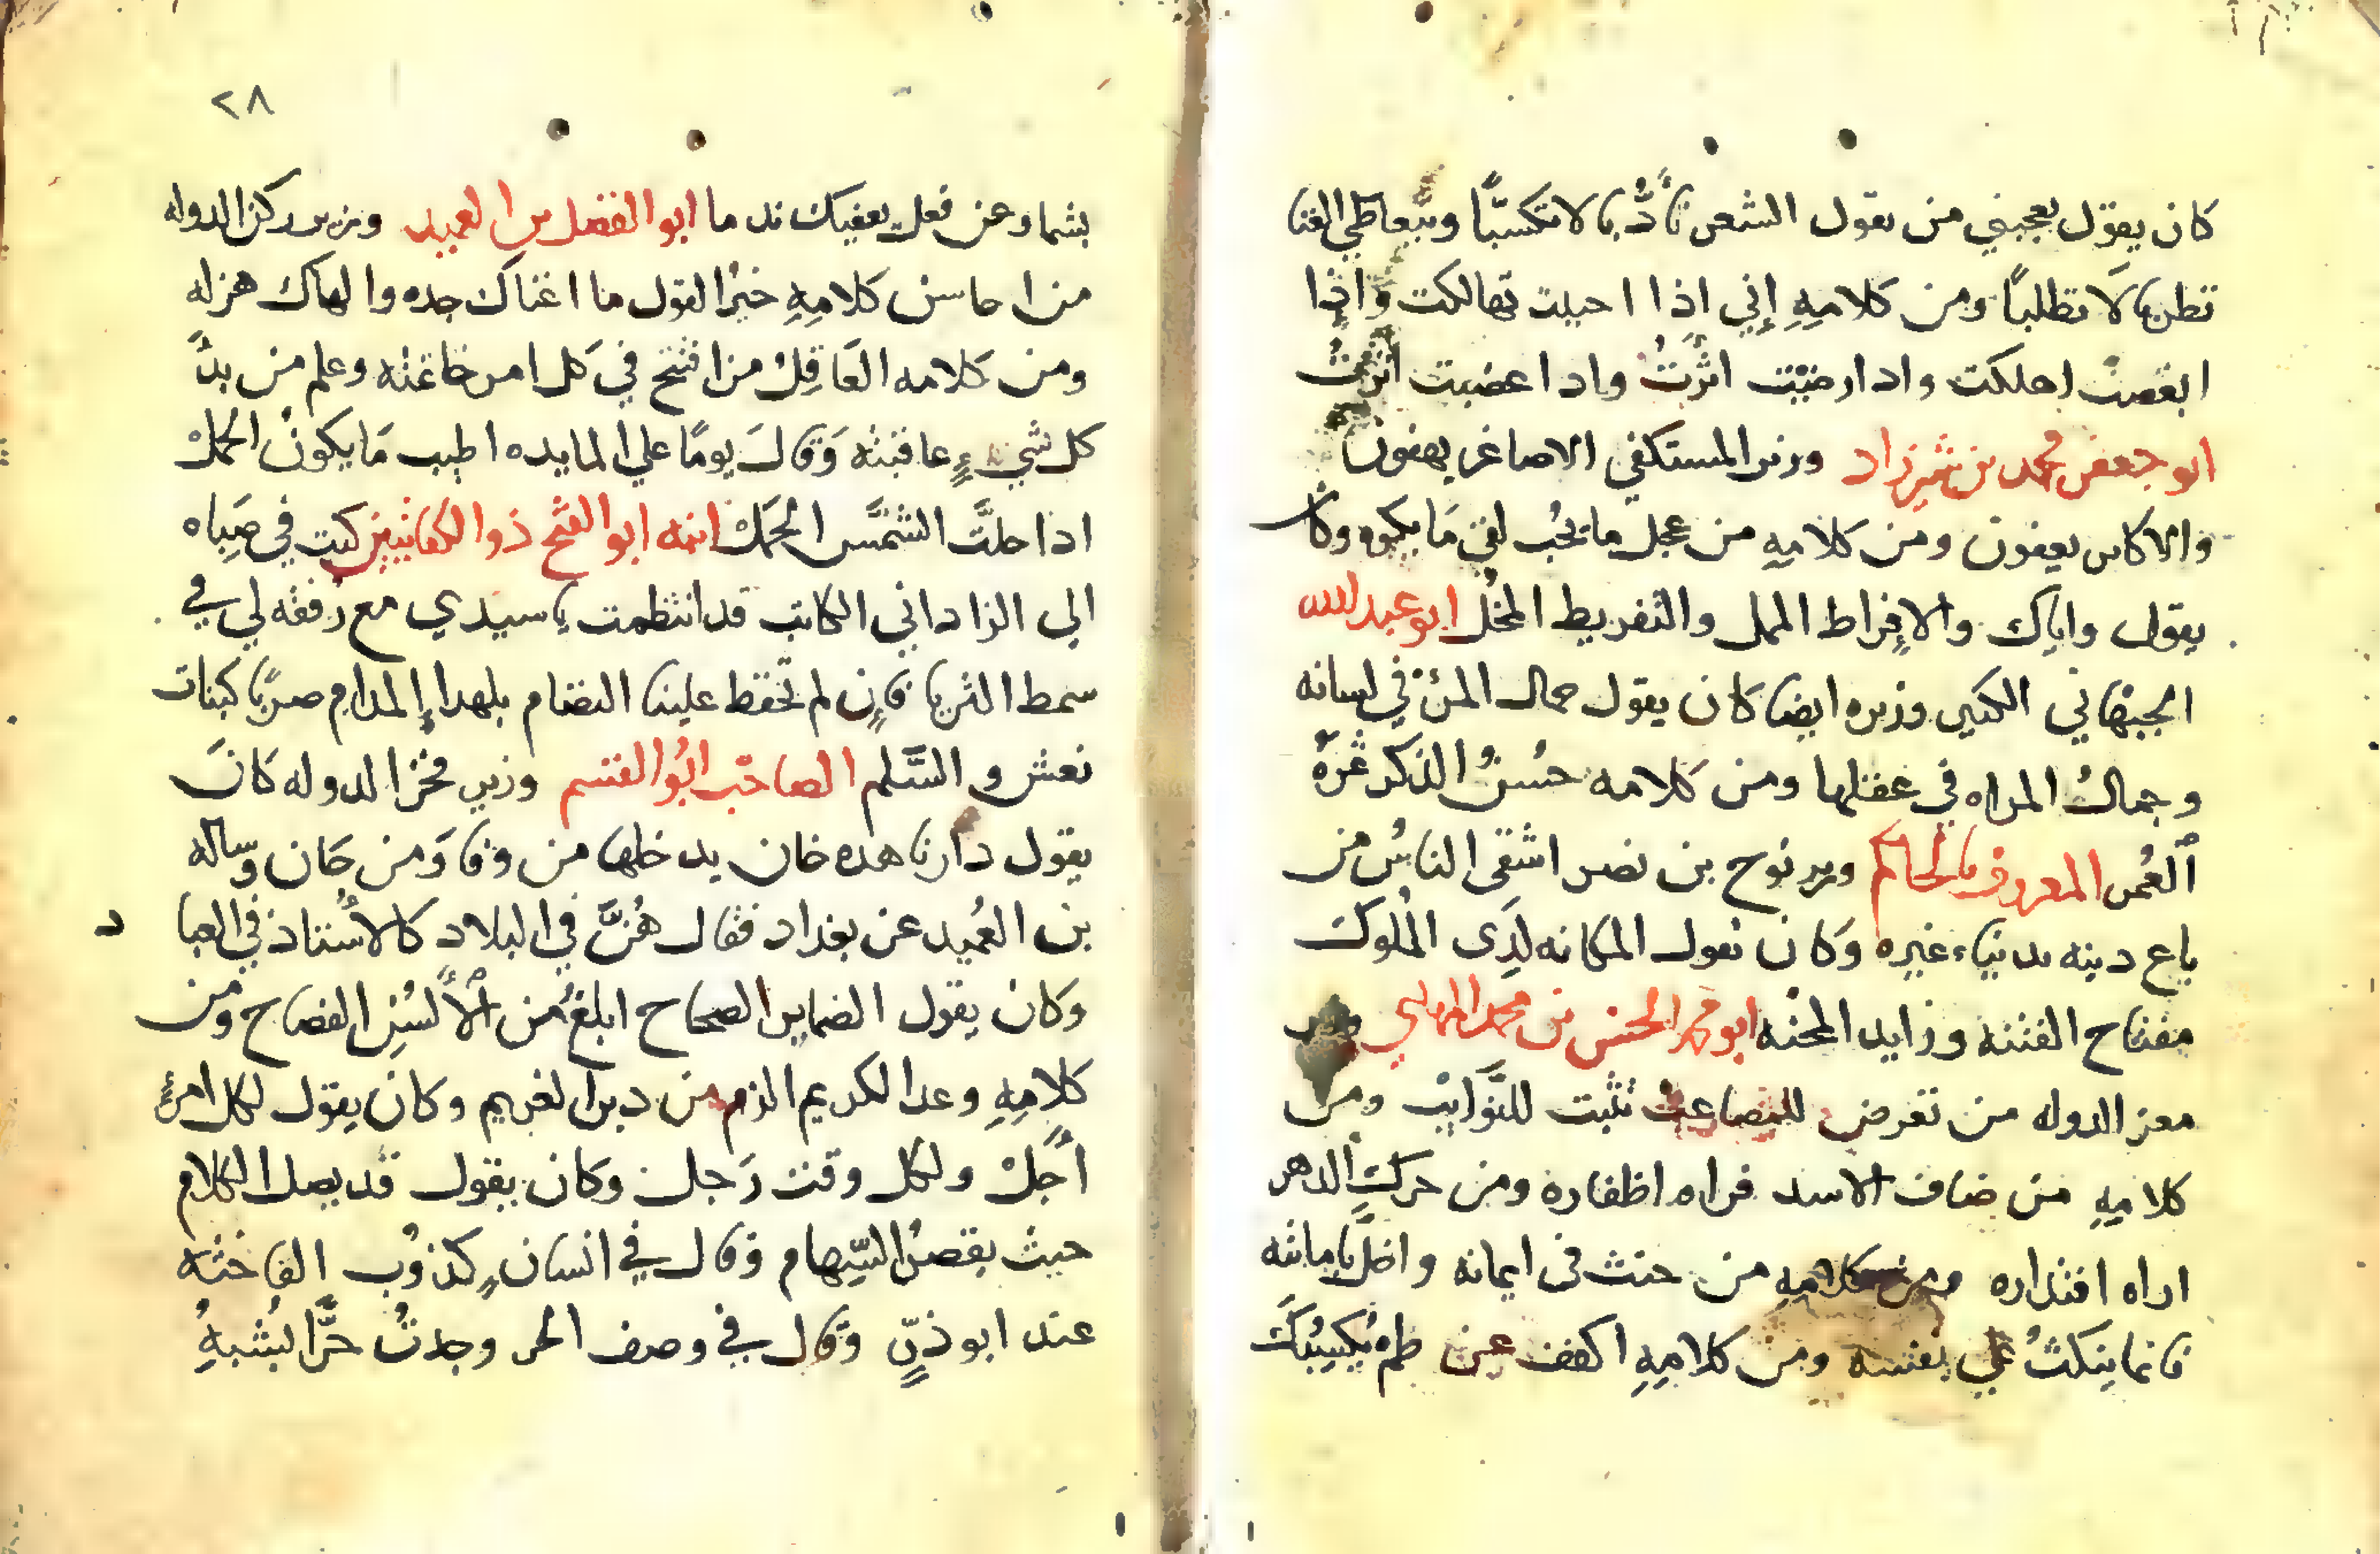 كان يقول يعجبني من يقول الشعر تأدُّبا لا تكسبًّا ويتعاطي الغنا
تطربا لَا تطلباً ومن كلامِهِ إِني اذا احببت تهالكت وَاذِا
ابغضت اهلكت واذا رضيْت اثرتُ واذا غضبت اثرت
ابو جعفر محمد بن شيرزاد وزير المستكفي الاصاغر يهفون
والاكابر يعفون ومن كلامِهِ من عجل ما يحُب لقي مَا يكره وكان
يقول واياك والاِفراط الممل والتفريط المخُل ابو عبد الله
الجيهاني الكبير وزيره ايضا كان يقول جمال المرء في لسانه
وجمالُ المراه في عقلها ومن كلامه حُسنُ الذكر ثمرَةُ
اَلعُمر المعروف بالحاكم وزير نوح بن نصر اشقى الناسُ من
باع دينه بدنياء غيره وَكان يقول المكانه لدَى المُلوك
مفتاح الفتنه وزايد المحنه ابو محمد الحسن بن محمد المهلبي وزير
معز الدوله من تعرض للمصاعب تثبت للنَّوايب ومن
كلامِهِ من ضاف الاسد قراه اظفاره ومن حركتِ الدهر
اراه اقتداره ومن كلامِهِ من حنث في ايمانه واخلَّ بامانته
فانما ينكثُ علي نفسه ومن كلامِهِ اكفف عن طمْ يُكسِبُكَ
٢٨
بشما وعن فعل يعقبك ندما ابو الفضل بن العميد وزير ركن الدوله
من احاسن كلامِهِ خيرُ القول ما اغناك جده والهاك هزله
ومن كلامه العَاقِلُ من افتتح في كل امر خاتمته وعلم من بدُّ
كل شيءٍ عاقبته وَقالَ يومًا علي المايده اطيب مَا يكونُ الحمَلْ
اذا حلتَّ الشمَّس الحمَلْ ابنه ابو الفتح ذوا الكفايتين كتب في صِباه
الي الزاداني الكاتب قد انتظمت يا سيدي مع رُفقه لي في
سمط الثريا فإن لم تحفظ علينا النضام بلهدا إِلمدامِ صرنا كبنات
نعش والسَّلم الصاحب ابُو القسم وزير فخر الدوله كانَ
يقول دارنا هده خان يدخلها من وفا وَمن خان وساله
بن العُميد عن بغداد فقال هُنَّ في البلاد كالاُستاذ في العباد
وكان يقول الضماير الصحاح ابلغُ من اَلأَلسُنِ الفصاح ومن
كلامِهِ وعد الكريم الزم من دين الغريم وكان يقول لكل امرئ
أَجَلْ ولكل وقت رَجل وكان يقول قد يصل الكلام
حيث يقصرُ السِّهام وَقال في انسان كذوُب الفاخته
عند ابو ذرٍّ وَقال في وصف الحر وجدتُ حرًّا يُشبهُ